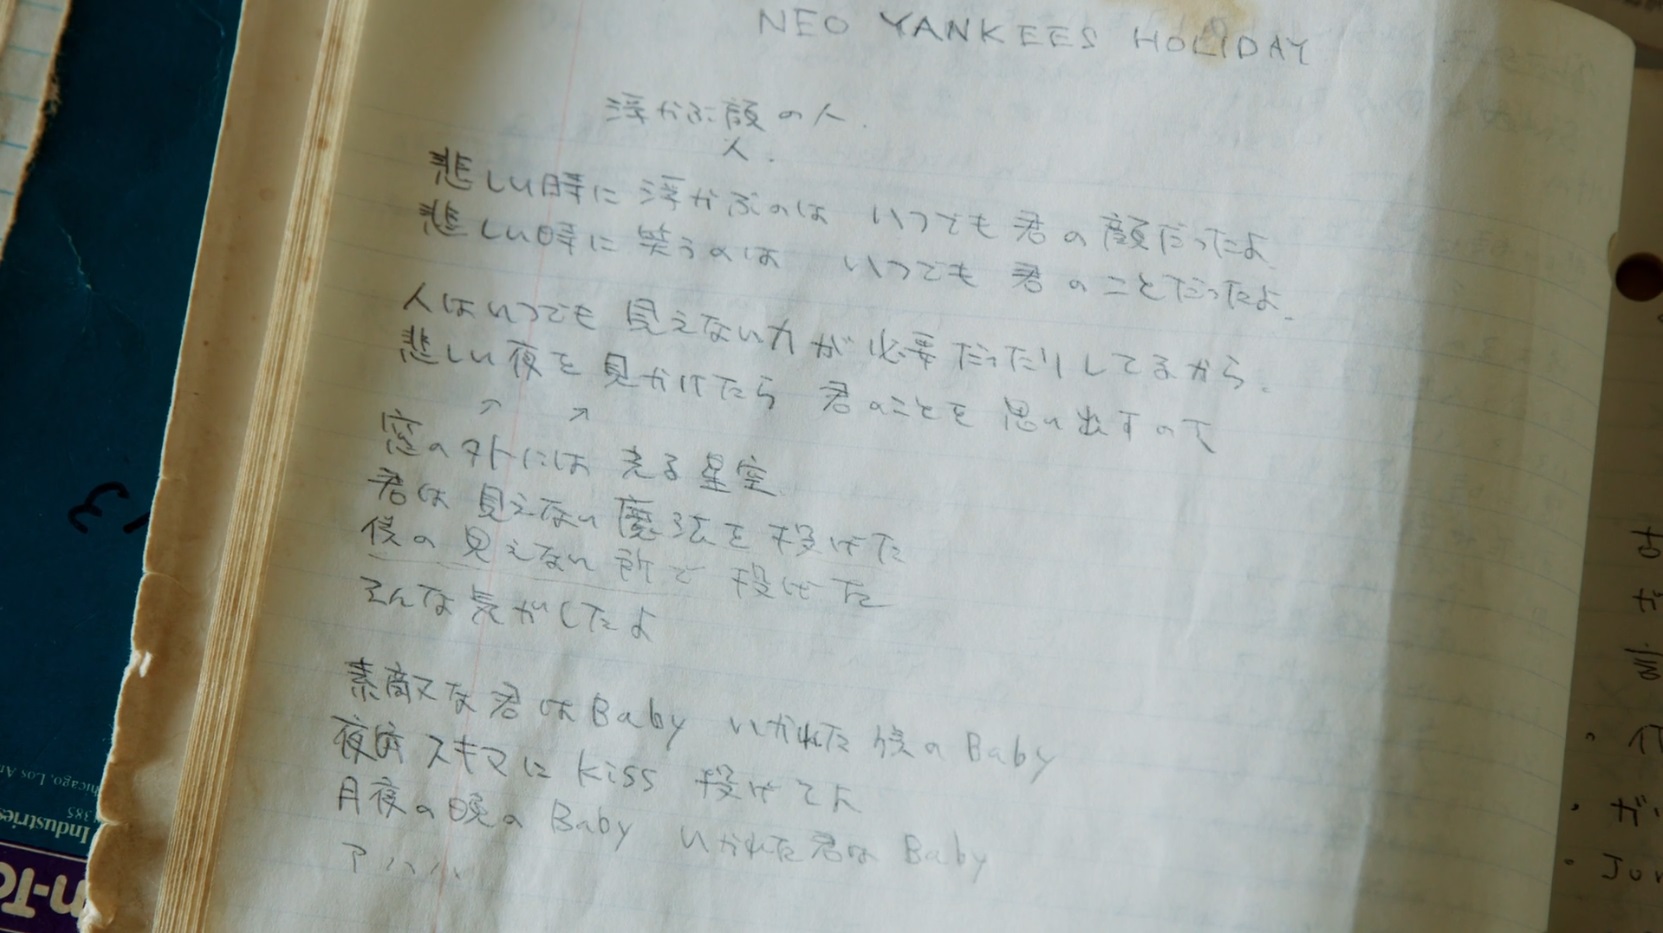 NEO YANKEES HOLIDAY
浮かぶ顔の人.
人.
悲しい時に 浮かぶのは いつでも 君の 顔だったよ
悲しい時に 笑うのは いつでも 君のことだったよ.
人はいつでも 見えない力が 必要だったりしてるから.
悲しい夜を 見かけたら 君のことを 思い出すので
窓の外には 光る星空
君は 見えない 魔法を 投げた
僕の 見えない 所で 投げた
そんな気がしたよ
素敵な君はBaby いかれた 僕の Baby
夜のスキマに kiss 投げてよ
月夜の晩の Baby いかれた君は Baby
アハハ
13
Industries
385
hicago, Los An
n-To
Jun